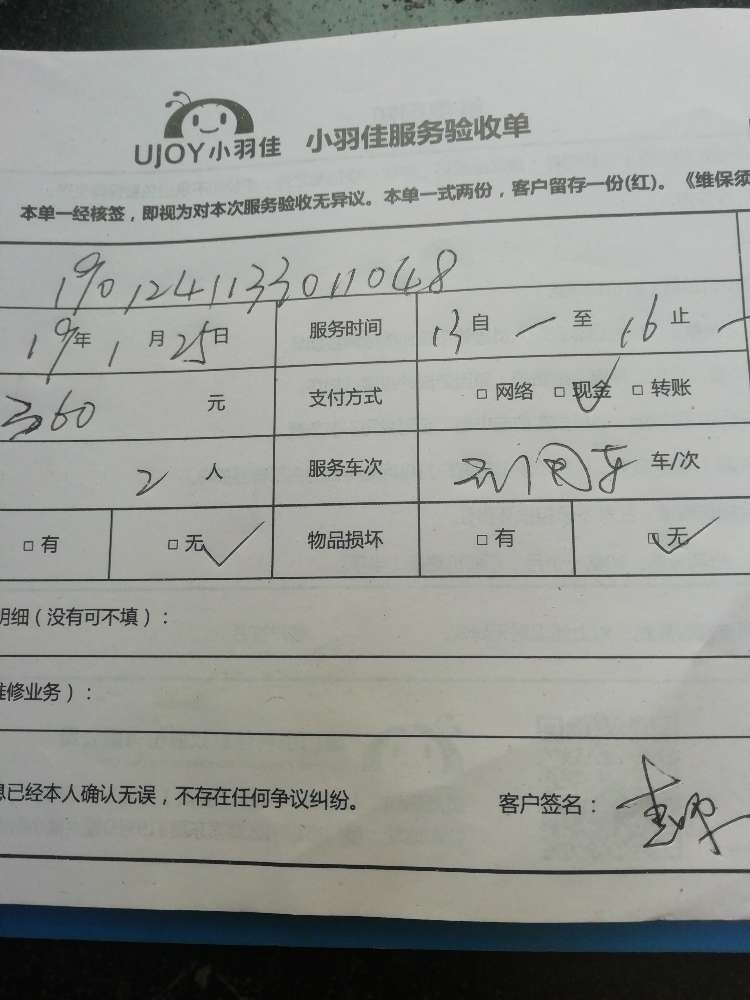 UJOY小羽佳 小羽佳服务验收单
本单一经核签，即视为对本次服务验收无异议。本单一式两份，客户留存一份(红)。《维保须
1901241133011048
19年1月25日 服务时间 13自一至16止
360 元 支付方式 □ 网络 □ 现金 □ 转账
2 人 服务车次 车/次
□ 有 □ 无 物品损坏 □ 有 □ 无
明细（没有可不填）：
维修业务）：
息已经本人确认无误，不存在任何争议纠纷。 客户签名：